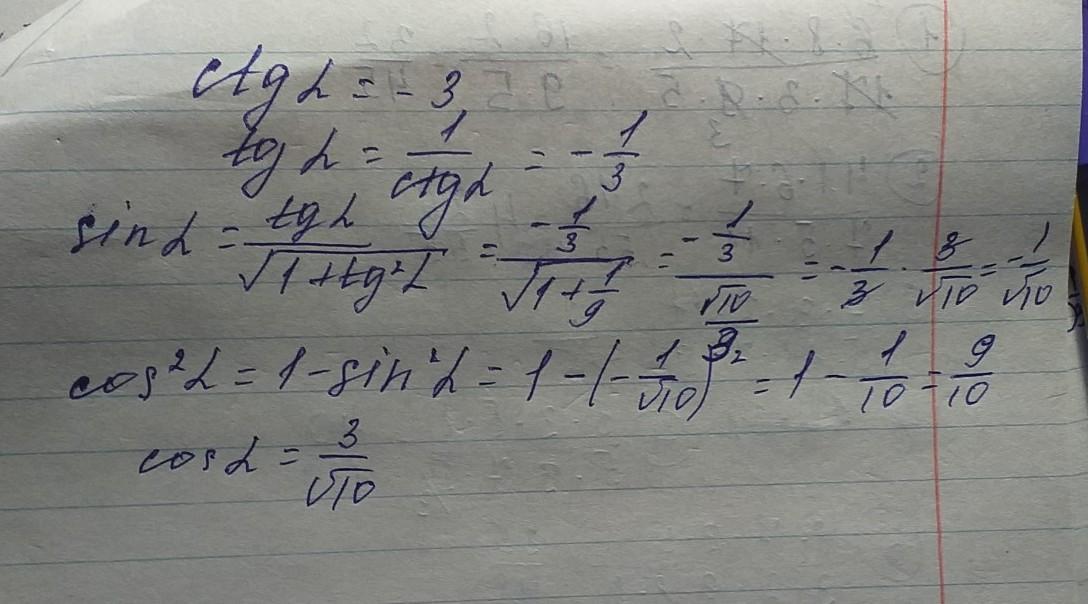 ctg α = - 3
tg α = 1/ctg α = - 1/3
sin α = tg α/√(1+tg²α) = (-1/3)/√(1+1/9) = (-1/3)/(√10/3) = - 1/3 · 3/√10 = -1/√10
cos²α = 1 - sin²α = 1 - (-1/√10)² = 1 - 1/10 = 9/10
cos α = 3/√10